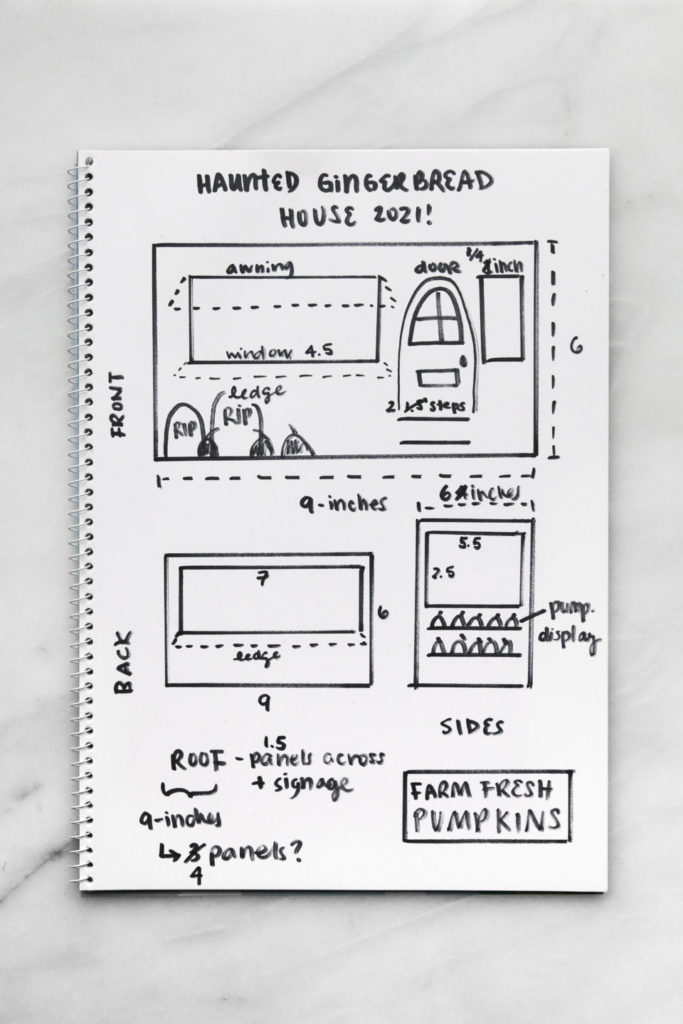 HAUNTED GINGERBREAD
HOUSE 2021!
FRONT
awning
door
3/4 inch
window 4.5
ledge
RIP
RIP
2 1.5" steps
6
9-inches
6 inches
BACK
7
6
ledge
9
5.5
2.5
pump.
display
SIDES
1.5
ROOF - panels across
+ signage
9-inches
↳ 3 panels?
4
FARM FRESH
PUMPKINS